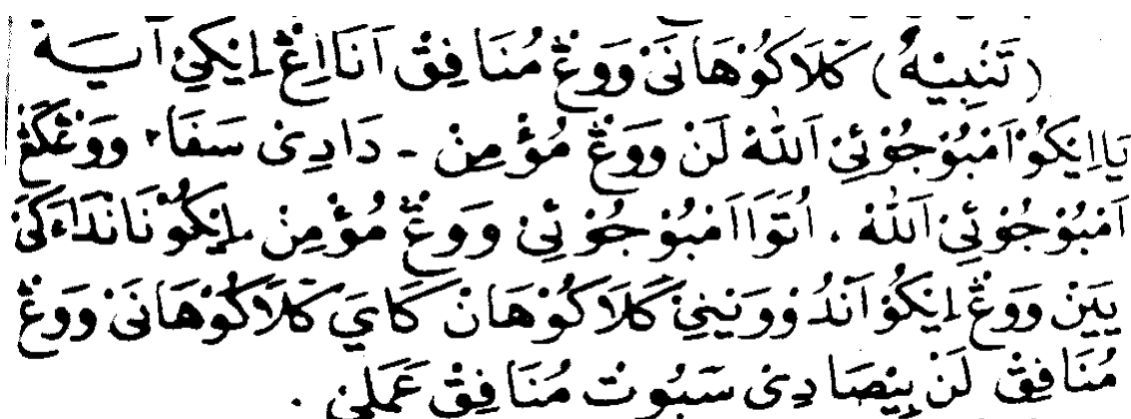 (تَنْبِيْهٌ) كَلَاكُوْهَانَىْ وَوڠْ مُنَافِقْ اَنَا اِڠْ اِيْكِيْ اٰيَةْ
يَااِيْكُوْ اَمْبُوْجُوْئِيْ اَللّٰهْ لَنْ وَوڠْ مُؤْمِنْ - دَادِىْ سَفَا٢ وَوڠْكَڠْ
اَمْبُوْجُوْئِيْ اَللّٰهْ . اُتَوَا اَمْبُوْجُوْئِيْ وَوڠْ مُؤْمِنْ اِيْكُوْ نَانْدَاءَكَىْ
يَيْنْ وَوڠْ اِيْكُوْ اَنْدُوْوَيْنِيْ كَلَاكُوْهَانْ كَايَ كَلَاكُوْهَانَىْ وَوڠْ
مُنَافِقْ لَنْ بِيْصَا دِىْ سَبُوْتْ مُنَافِقْ عَمَلِيْ .